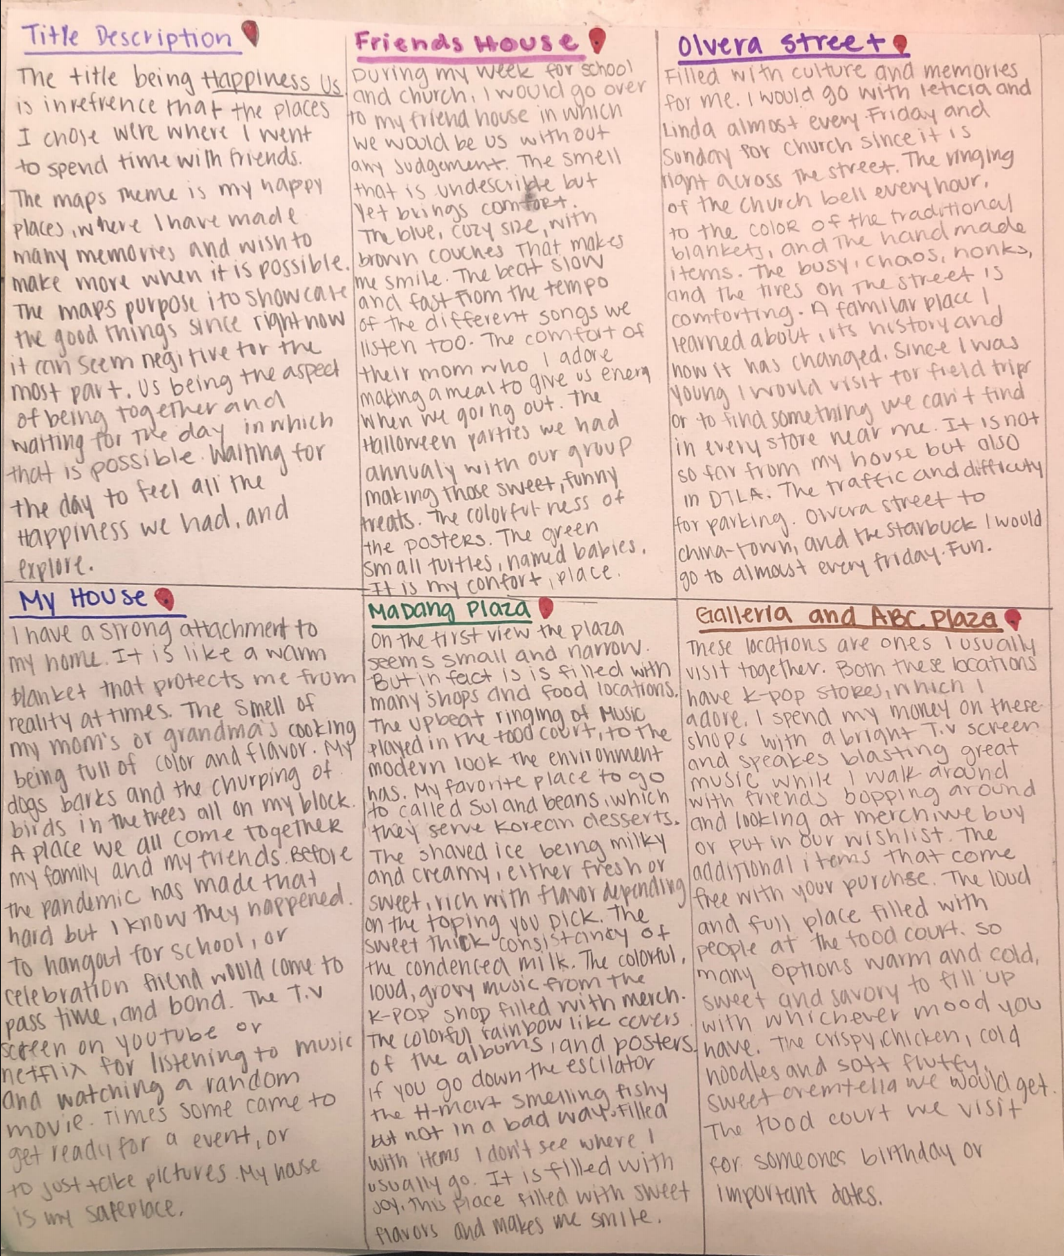 Title Description
The title being Happiness Us
is in refrence that the places
I chose were where I went
to spend time with friends.
The maps theme is my happy
places, where I have made
many memories and wish to
make more when it is possible.
The maps purpose i to showcate
the good things since right now
it can seem negitive for the
most part. Us being the aspect
of being together and
waiting for the day in which
that is possible. Waiting for
the day to feel all the
Happiness we had, and
explore.
Friends House
During my week for school
and church, I would go over
to my friend house in which
we would be us with out
any Judgement. The smell
that is undescrible but
yet brings comfort.
The blue, cozy size, with
brown couches that makes
me smile. The beat slow
and fast from the tempo
of the different songs we
listen too. The comfort of
their mom who I adore
making a meal to give us energy
when we going out. The
Halloween parties we had
annualy with our group
making those sweet, funny
treats. The colorful ness of
the posters. The green
small turtles, named babies.
It is my confort, place.
Olvera Street
Filled with culture and memories
for me. I would go with leticia and
Linda almost every Friday and
Sunday for church since it is
right across the street. The ringing
of the church bell every hour,
to the color of the traditional
blankets, and the hand made
items. The busy, chaos, honks,
and the tires on the street is
comforting. A familar place I
learned about, its history and
how it has changed. Since I was
young I would visit for field trips
or to find something we can't find
in every store near me. It is not
so far from my house but also
in DTLA. The traffic and difficuty
for parking. Olvera street to
china-town, and the starbuck I would
go to almost every friday. Fun.
My House
I have a strong attachment to
my home. It is like a warm
blanket that protects me from
reality at times. The smell of
my mom's or grandma's cooking
being full of color and flavor. My
dogs barks and the churping of
birds in the trees all on my block.
A place we all come together
my family and my friends. Before
the pandemic has made that
hard but I know they happened.
To hangout for school, or
celebration friend would come to
pass time, and bond. The T.V
screen on youtube or
netflix for listening to music
and watching a random
movie. Times some came to
get ready for a event, or
to just take pictures. My house
is my safeplace.
Madang Plaza
On the first view the plaza
seems small and narrow.
But in fact is is filled with
many shops and food locations.
The upbeat ringing of Music
played in the food court, to the
modern look the environment
has. My favorite place to go
to called Sul and beans, which
they serve Korean desserts.
The shaved ice being milky
and creamy, either fresh or
sweet, rich with flavor depending
on the toping you pick. The
sweet thick consistancy of
the condenced milk. The colorful,
loud, grovy music from the
K-POP shop filled with merch.
The colorful rainbow like covers
of the albums, and posters
If you go down the escilator
the H-mart smelling fishy
but not in a bad way. filled
with items I don't see where I
usually go. It is filled with
joy. This place filled with sweet
flavors and makes me smile.
Galleria and ABC Plaza
These locations are ones I usually
visit together. Both these locations
have K-pop stores, which I
adore. I spend my money on these
shops with a bright T.V screen
and speakes blasting great
music while I walk around
with friends bopping around
and looking at merch we buy
or put in our wishlist. The
additional items that come
free with your purchse. The loud
and full place filled with
people at the food court. so
many options warm and cold,
sweet and savory to fill up
with whichever mood you
have. The crispy chicken, cold
noodles and soft fluffy,
sweet we would get.
The food court we visit
for someones birthday or
important dates.